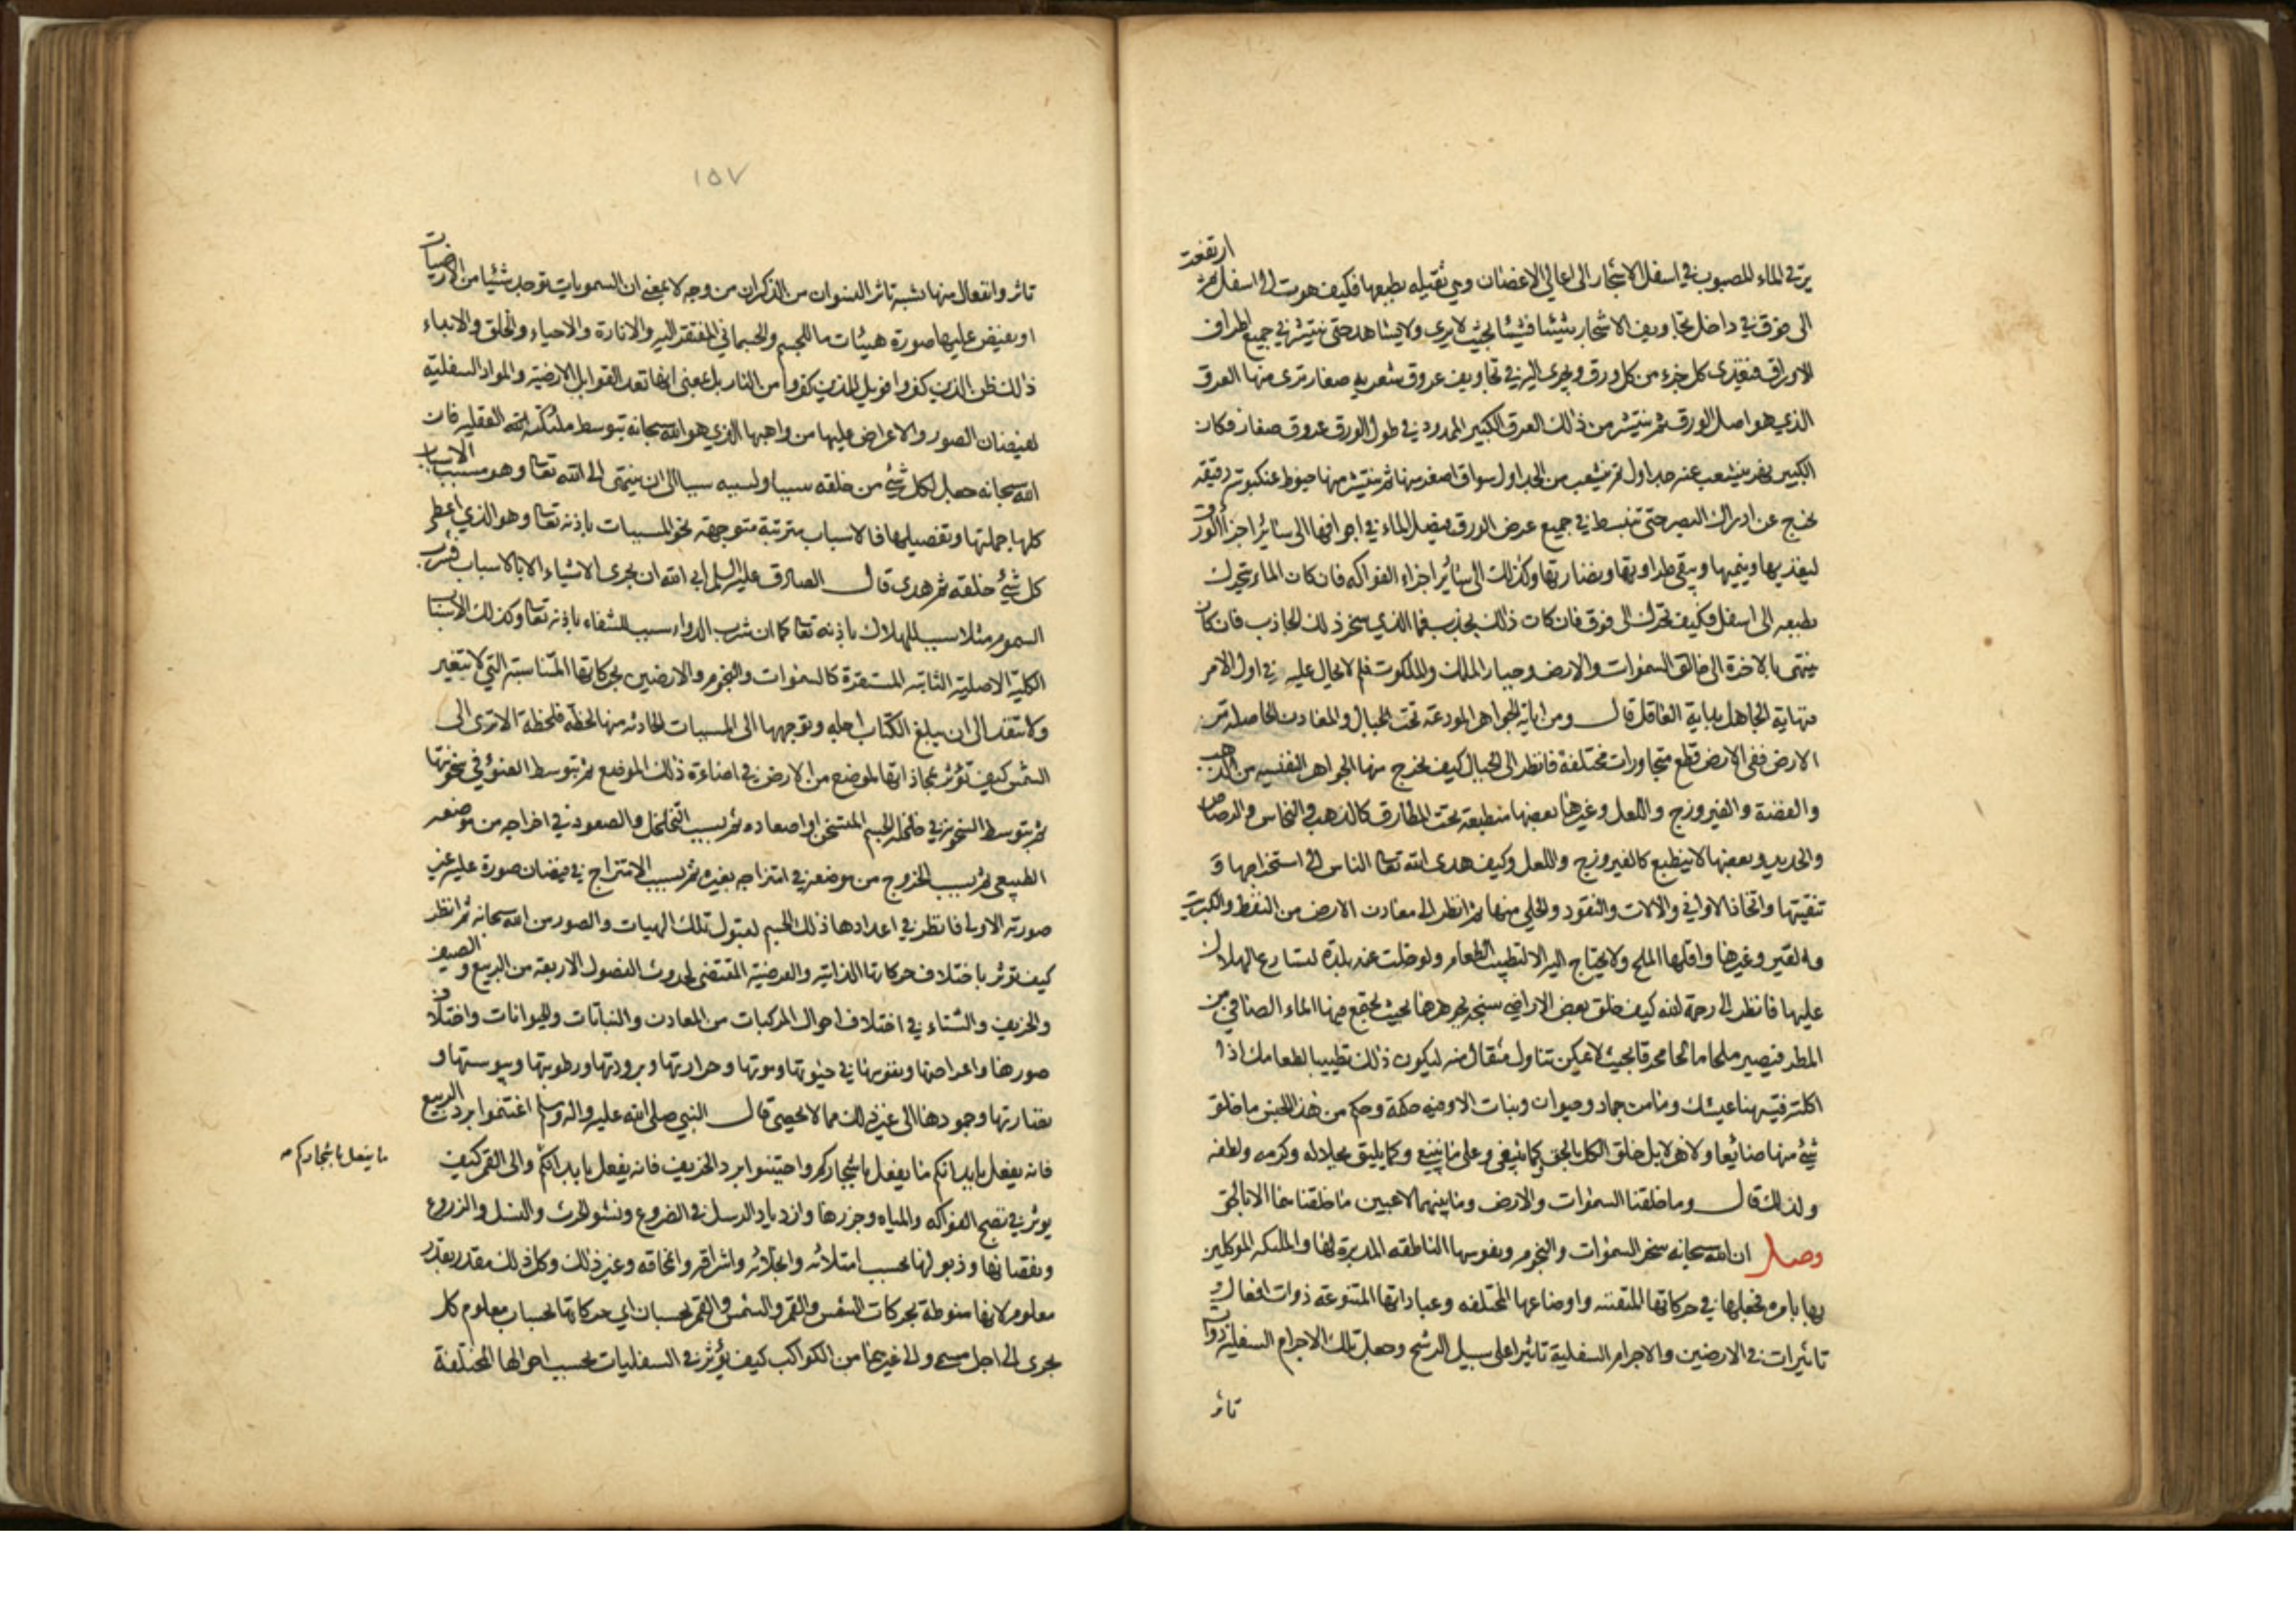 يرقى الماء المصبوب في اسفل الاشجار الى اعالي الاغصان وهي ثقيلة بطبعها فكيف هوت الى اسفل ثم ارتفعت
الى فوق في داخل تجاويف الاشجار شيئا فشيئا بحيث لا يرى ولا يشاهد حتى ينتشر في جميع اطراف
الاوراق فيغذى كل جزء من كل ورق ويجرى اليه في تجاويف عروق شعرية صغار ترى منها العرق
الذي هو اصل الورق ثم ينتشر من ذلك العرق الكبير الممدود في طول الورق عروق صغار فكان
الكبير نهر ينشعب عنه جداول ثم ينشعب من الجداول سواق اصغر منها ثم ينتشر منها خيوط عنكبوتية دقيقة
تخرج عن ادراك البصر حتى تنبسط في جميع عرض الورق فيصل الماء في اجوافها الى سائر اجزاء الورق
ليغذيها وينميها ويبقى طراوتها ونضارتها وكذلك الى سائر اجزاء الفواكه فان كان الماء يتحرك
بطبعه الى اسفل فكيف تحرك الى فوق فان كان ذلك بجذب فما الذي سخر ذلك الجاذب فان كان
ينتهى بالاخرة الى خالق السموات والارض وجبار الملك والملكوت فلم لا يحال عليه في اول الامر
فنهاية الجاهل بداية العاقل قال ومن اياته الجواهر المودعة تحت الجبال والمعادن الحاصلة من
الارض ففي الارض قطع متجاورات مختلفة فانظر الى الجبال كيف يخرج منها الجواهر النفيسة من الذهب
والفضة والفيروزج واللعل وغيرها بعضها منطبعة تحت المطارق كالذهب والنحاس والرصاص
والحديد وبعضها لا ينطبع كالفيروزج واللعل وكيف هدى الله تعالى الناس الى استخراجها و
تنقيتها واتخاذ الاواني والالات والنقود والحلي منها ثم انظر الى معادن الارض من النفط والكبريت
والقير وغيرها واقلها الملح ولا يحتاج اليه الا لتطييب الطعام ولو خلت عنه بلدة لتسارع الهلاك
عليها فانظر الى رحمة الله كيف خلق بعض الاراضي سبخة بجوهرها بحيث يجتمع فيها الماء الصافي من
المطر فيصير ملحا مالحا محرقا بحيث لا يمكن تناول مثقال منه ليكون ذلك تطييبا لطعامك اذا
اكلته فيتهنا عيشك وما من جماد وحيوان ونبات الا وفيه حكمة وحكم من هذا الجنس ما خلق
شئ منها ضائعا ولا هزلا بل خلق الكل بالحق كما ينبغي وعلى ما ينبغي وكما يليق بجلاله وكرمه ولطفه
ولذلك قال وما خلقنا السموات والارض وما بينهما لاعبين ما خلقناهما الا بالحق
وصل ان الله سبحانه سخر السموات والنجوم ونفوسها الناطقة المدبرة لها والملئكة الموكلين
بها بامره فجعلها في حركاتها المتقنة واوضاعها المختلفة وعباداتها المتنوعة ذوات افعال و
تاثيرات في الارضين والاجرام السفلية تاثيرا على سبيل الرشح وجعل تلك الاجرام السفلية ذوات
تاثر
١٥٧
تاثر وانفعال منها شبه تاثر النسوان من الذكران من وجه لا بمعنى ان السمويات توجد شيئا من الارضيات
او يفيض عليها صورة هيئات ما للجسم والجسماني المفتقر اليه والانارة والاحياء والخلق والابداء
ذلك ظن الذين كفروا فويل للذين كفروا من النار بل بمعنى انها تعد القوابل الارضية والمواد السفلية
لفيضان الصور والاعراض عليها من واهبها الذي هو الله سبحانه بتوسط ملئكته العقلية فان
الله سبحانه جعل لكل شئ من خلقه سببا ولسببه سببا الى ان ينتهى الى الله تعالى وهو مسبب الاسباب
كلها جملتها وتفصيلها فالاسباب مترتبة متوجهة نحو المسببات باذنه تعالى وهو الذي اعطى
كل شئ خلقه ثم هدى قال الصادق عليه السلم ابى الله ان يجرى الاشياء الا بالاسباب فشرب
السموم مثلا سبب للهلاك باذنه تعالى كما ان شرب الدواء سبب للشفاء باذنه تعالى وكذلك الاسباب
الكلية الاصلية الثابتة المستقرة كالسموات والنجوم والارضين بحركاتها المتناسبة التي لا يتغير
ولا تنفد الى ان يبلغ الكتاب اجله وتوجهها الى المسببات الحادثة منها لحظة فلحظة الا ترى الى
الشمس كيف تؤثر بمحاذاتها لموضع من الارض في اضاءة ذلك الموضع ثم بتوسط الضوء في سخونتها
ثم بتوسط السخونة في خلخلة الجسم المتسخن او اصعاده ثم بسبب التخلخل والصعود في اخراجه من موضعه
الطبيعى ثم بسبب الخروج من موضعه في امتزاجه بغيره ثم بسبب الامتزاج في فيضان صورة عليه غير
صورته الاولى فانظر في اعدادها ذلك الجسم لقبول تلك الهيات والصور من الله سبحانه ثم انظر
كيف تؤثر باختلاف حركاتها الذاتية والعرضية المقتضى لحدوث الفصول الاربعة من الربيع والصيف
والخريف والشتاء في اختلاف احوال المركبات من المعادن والنباتات والحيوانات واختلاف
صورها واعراضها ونفوسها في حيوتها وموتها وحرارتها وبرودتها ورطوبتها ويبوستها و
نضارتها وجمودها الى غير ذلك مما لا يحصى قال النبي صلى الله عليه واله وسلم اغتنموا برد الربيع
فانه يفعل بابدانكم ما يفعل باشجاركم واجتنبوا برد الخريف فانه يفعل بابدانكم والى القمر كيف
ما يفعل باشجاركم
يوثر في نضج الفواكه والمياه وجزرها وازدياد الرسل في الضروع ونشو الحرث والنسل والزروع
ونقصانها وذبولها بحسب امتلائه وانجلائه واشراقه وانمحاقه وغير ذلك وكل ذلك مقدر بقدر
معلوم لانها منوطة بحركات الشمس والقمر والشمس والقمر بحسبان اي حركاتها بحساب معلوم كل
يجرى الى اجل مسمى والى غيرهما من الكواكب كيف يؤثر في السفليات بحسب احوالها المختلفة